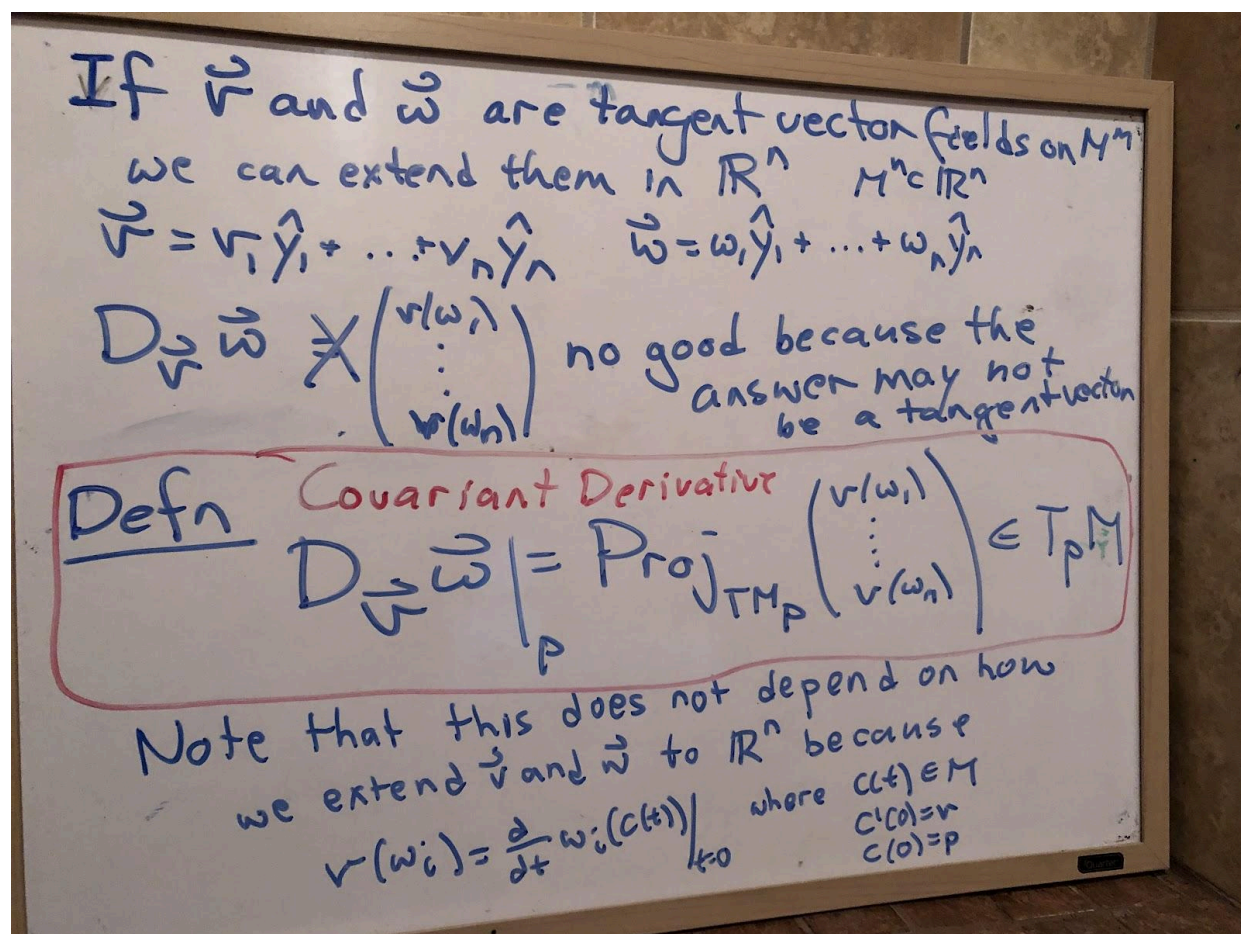 If v⃗ and w⃗ are tangent vector fields on Mᵐ
we can extend them in ℝⁿ Mⁿ⊂ℝⁿ
v⃗ = v₁ŷ₁ + ... + vₙŷₙ w⃗ = w₁ŷ₁ + ... + wₙŷₙ
D_v⃗ w⃗ ≠ (v(w₁) ⋮ v(wₙ)) no good because the
answer may not
be a tangent vector
Defn Covariant Derivative
D_v⃗ w⃗ |_p = Proj_TM_p (v(w₁) ⋮ v(wₙ)) ∈ T_pM
Note that this does not depend on how
we extend v⃗ and w⃗ to ℝⁿ because
v(wᵢ) = d/dt wᵢ(c(t))|_t=0 where c(t) ∈ M
c'(0)=v
c(0)=p